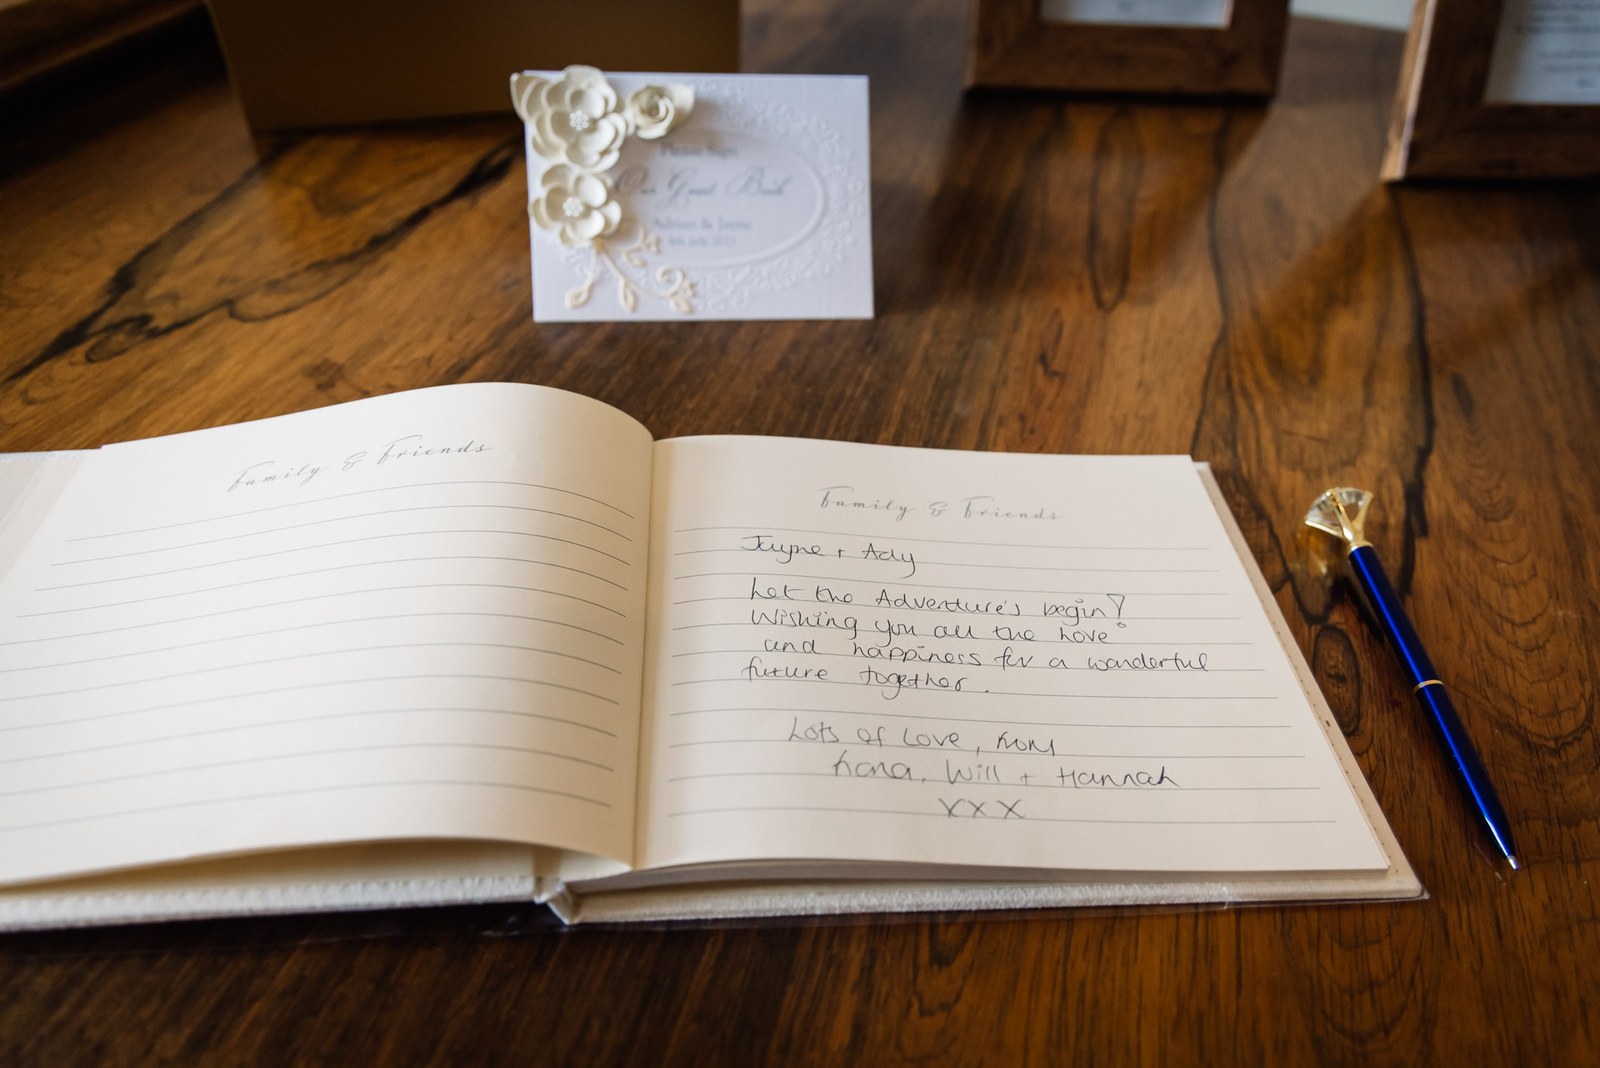 Please Sign
Our Guest Book
Adrian & Jayne
Family & Friends
Family & Friends
Jayne + Ady
Let the Adventure's begin!
Wishing you all the love
and happiness for a wonderful
future together.
Lots of Love, from
Will + Hannah
xxx